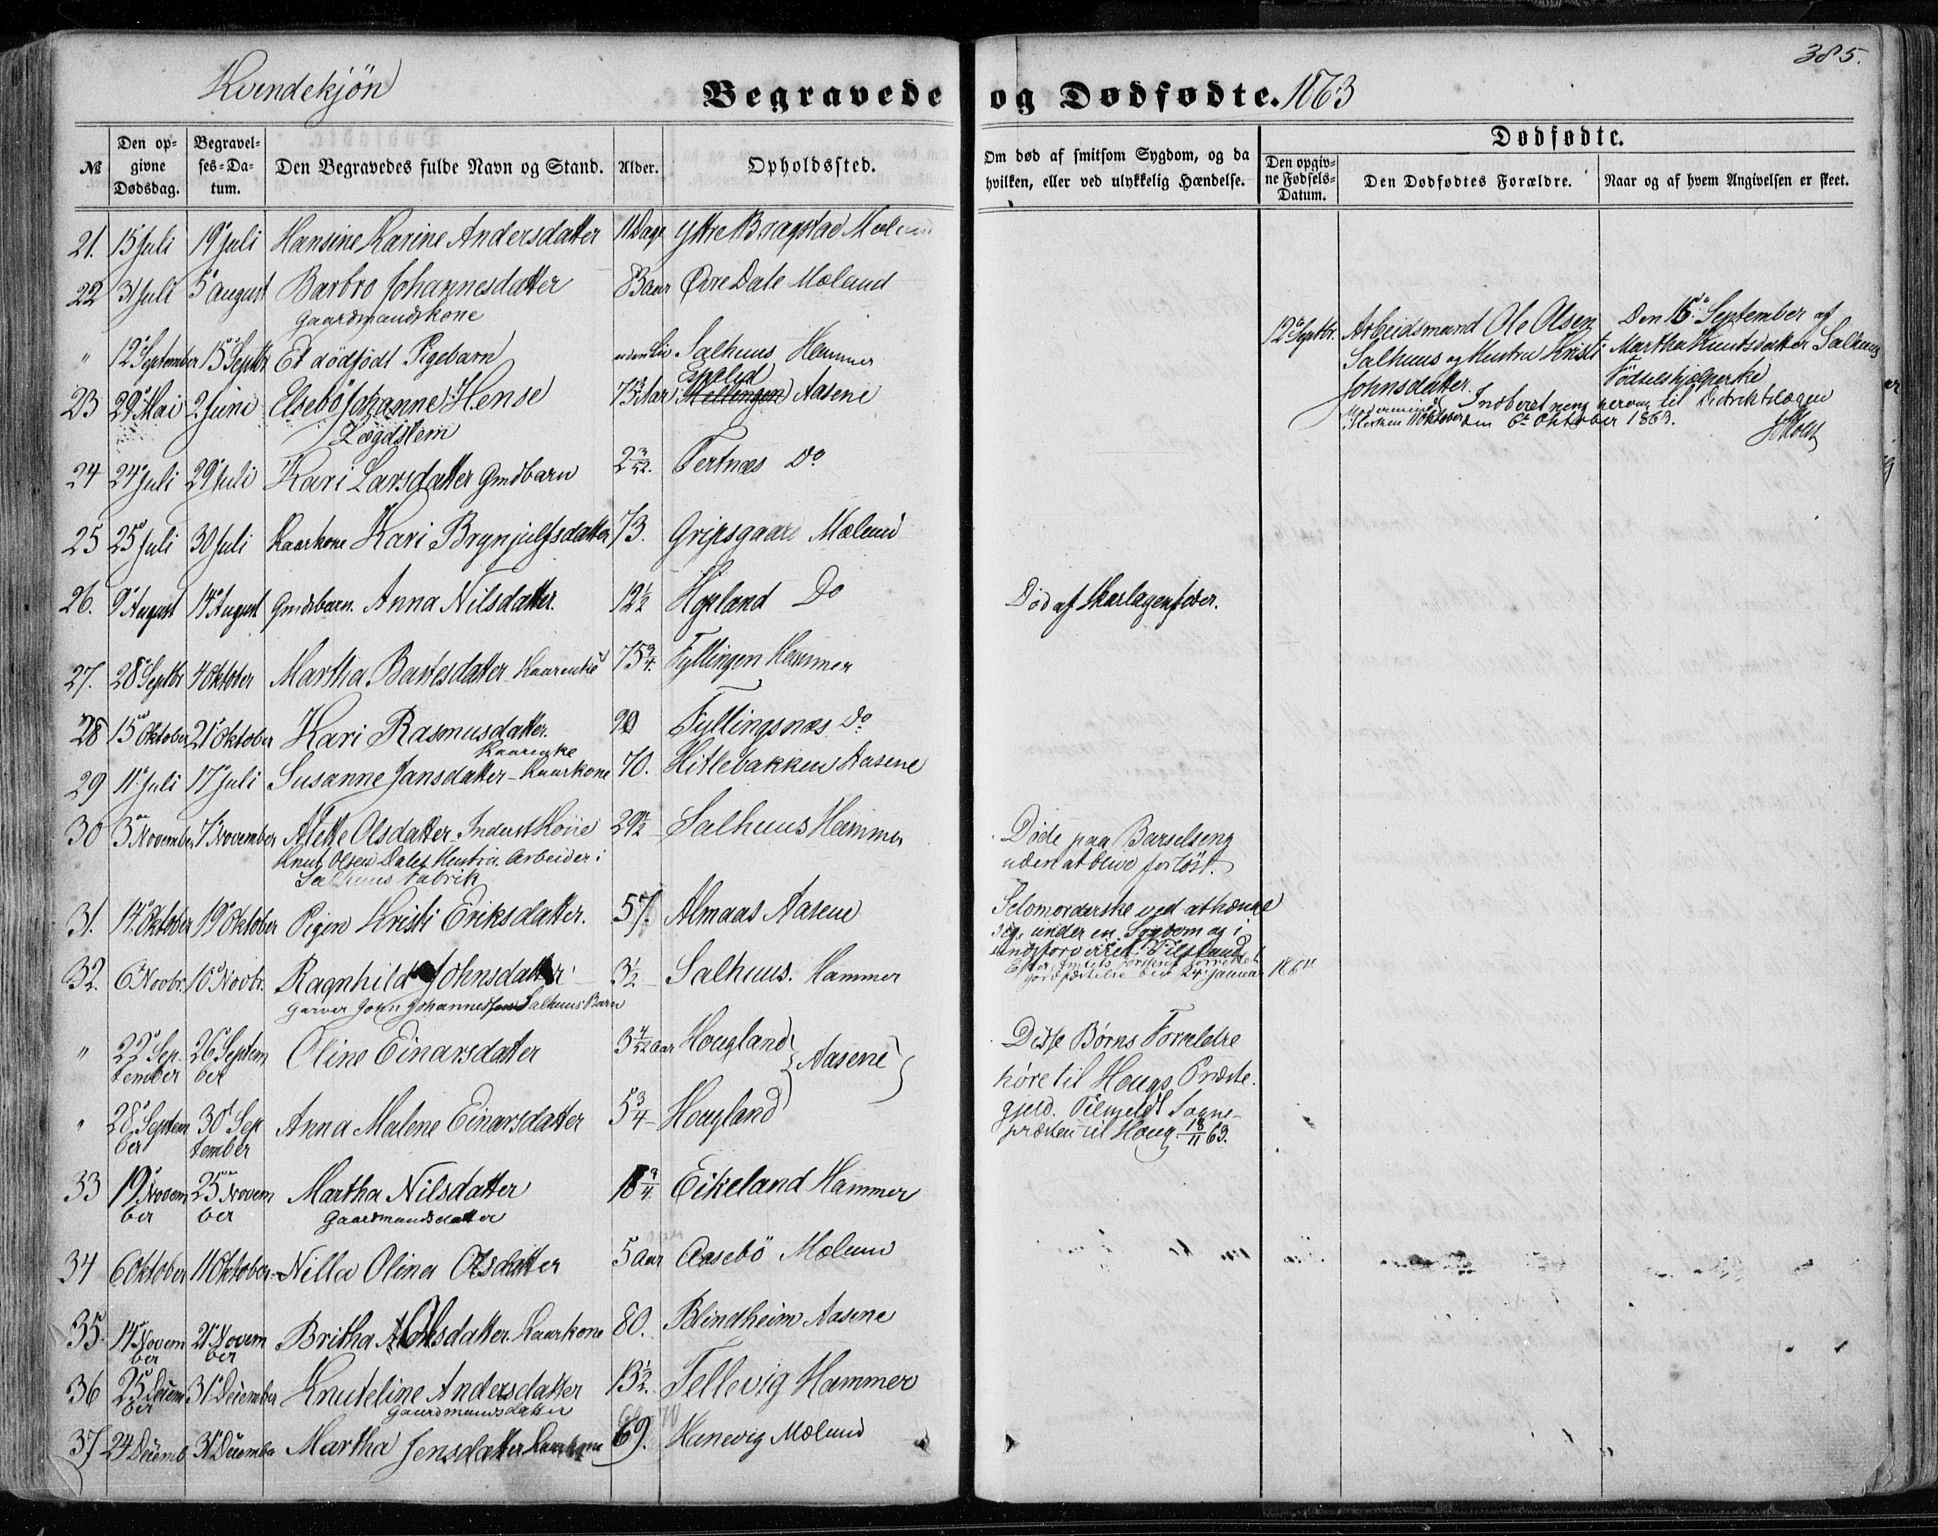 Kvendekjön
385.
Begravede og Dødfødte. 1863
№
Den opgivne Dødsdag.
Begravelses-Datum.
Den Begravedes fulde Navn og Stand.
Alder.
Opholdssted.
Om død af smitsom Sygdom, og da hvilken, eller ved ulykkelig Hændelse.
Dødfødte.
Den opgivne Fødsels-Datum.
Den Dødfødtes Forældre.
Naar og af hvem Angivelsen er skeet.
21. 15 Juli 19 Juli Hansine Karine Andersdatter 11 Dage Yttre Bragstad Mæland
22 31 Juli 5 August Barbro Johannesdatter 83 aar Øvre Dale Mæland
Gaardmandskone
" 12 September 15 Septbr Et dödfödt Pigebarn Salhuus Hammer
12 Septbr. Arbeidsmand Ole Olsen Salhuus og Hustru Kristi Johnsdatter.
Den 15 September af Martha Knutsdatter Salhuus Födselshjælperske
Indberetning herom til Distriktslægen
den 6te Oktober 1863.
23 29 Mai 2 Juni Elsebö Johanne Hense Aar Espelid Mellingen Aasene
Lægdslem
24 24 Juli 29 Juli Kari Larsdatter Gmdbarn 2 3/52. Tertnæs Do
25 25 Juli 30 Juli Kaarkone Kari Brynjulfsdatter 73. Gripsgaard Mælund
26. 9 August 14 August Gmdsbarn. Anna Nilsdatter. 12 1/2 Hopland Do
Död af Skarlagensfeber.
27. 28 Septbr 4 Oktober Martha Baresdatter Kaarenke 75 3/4. Fyllingen Hammer
28 15 Oktober 21 Oktober Kari Rasmusdatter. Fyllingsnæs Do
Kaarenke
29 11 Juli 17 Juli Susanne Jansdatter - Kaarkone 70. Hitlebakken Aasene
30 3 November 7 November Alette Olsdatter Inderst Kone 29 1/2 Salhuus Hammer
Knut Olsen Dales Hustru. Arbeider i
Salhuus Fabrik
Döde paa Barselseng
uden at blive forlöst.
31. 14 Oktober 19 Oktober Pigen Kristi Eriksdatter. 57. Almaas Aasene
Selvmorderske ved at hænge
sig, under en Sygdom og i
sindsforvirret Tilstand
32. 6 Novbr. 10 Novbr. Ragnhild Johnsdatter 3 1/2 Salhuus. Hammer
den 24 Januar 1864
Garver John Johannessen Salhuus Barn
" 22 September 26 September Oline Einarsdatter 3 4/52 aar Hougland Aasene
Disse Børns Forældre
høre til Hougs Præste-
gjeld. Tilmeldt Sogne-
præsten til Houg 18/11 63.
" 28 September 30 September Anna Malene Einarsdatter 5 3/4 Hougland
33 19 November 25 November Martha Nilsdatter 18 3/4 Eikeland Hammer
Gaardmandsdatter
34 6 Oktober 11 Oktober Nilla Olina Olsdatter 5 aar Aasebö Mælund
35. 14 November 21 November Britha Olsdatter Kaarkone 80. Blindheim Aasene
36 25 December 31 December Knuteline Andersdatter 13 1/2. Tellevig Hammer
Gaardmandsdatter
37 24 Decemb 31 Decembe Martha Jensdatter Kaarkone 69. Hanevig Mælund